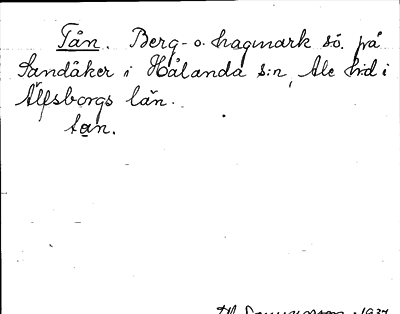 Tån. Berg- o. hagmark sö. på
Sandåker i Hålanda s:n, Ale hd i
Älfsborgs län.
tan.
1937